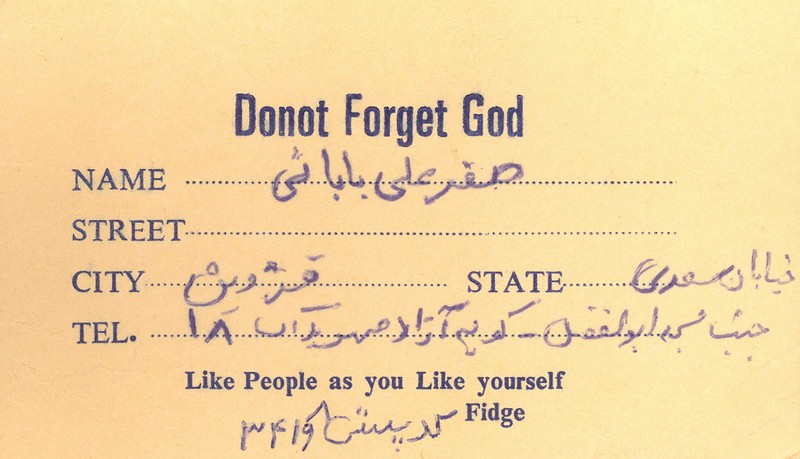 Donot Forget God
NAME صفر علی بابائی
STREET
CITY قزوین STATE خیابان سعدی
TEL. جنب مسجد ابوالفضل - کوچه آزاد پلاک ۱۸
Like People as you Like yourself
Fidge
کد پستی ۳۴۱۹۸